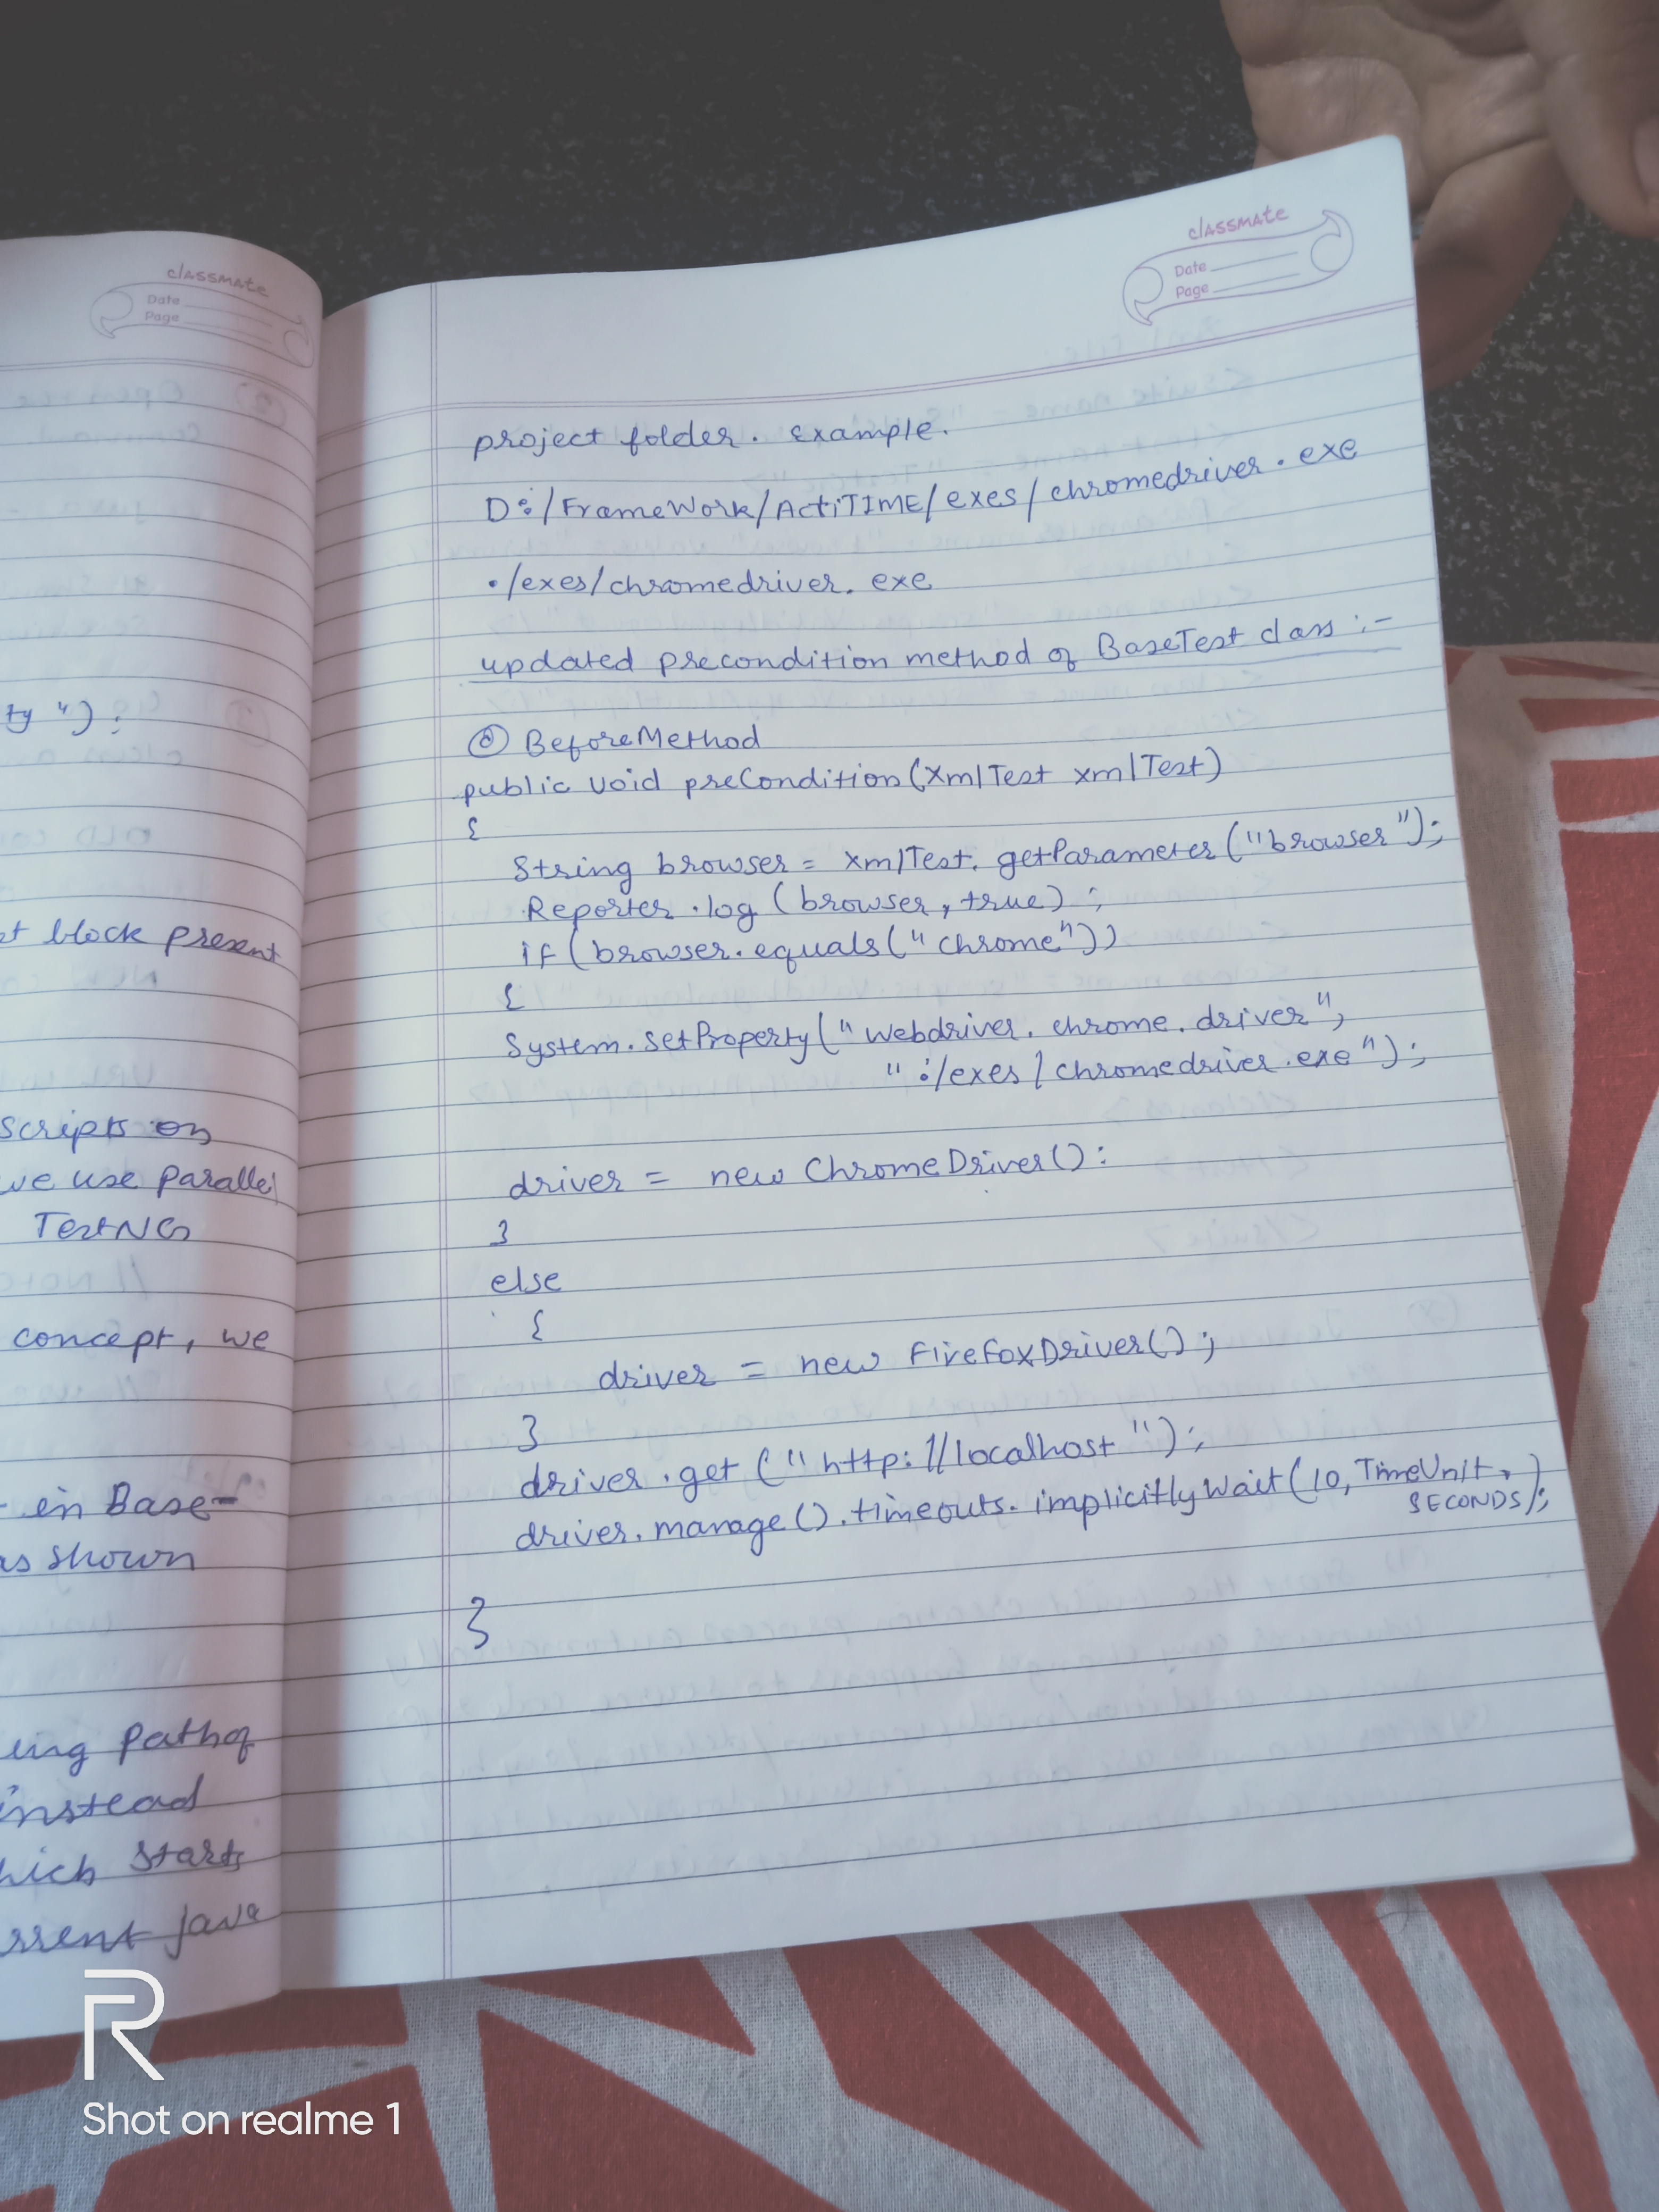 classmate
Date
Page
ty");
et block present
scripts on
we use parallel
TestNG
concept, we
in Base-
as shown
ing path of
instead
hich starts
rrent java
classmate
Date
Page
project folder. example.
D:/FrameWork/ActiTIME/exes/chromedriver.exe
./exes/chromedriver.exe
updated precondition method of BaseTest class :-
@ BeforeMethod
public void preCondition(XmlTest xmlTest)
{
String browser = xmlTest.getParameter("browser");
Reporter.log(browser, true);
if(browser.equals("chrome"))
{
System.setProperty("webdriver.chrome.driver",
"./exes/chromedriver.exe");
driver = new ChromeDriver():
}
else
{
driver = new FirefoxDriver();
}
driver.get("http://localhost");
driver.manage().timeouts.implicitlyWait(10, TimeUnit.
SECONDS);
}
R
Shot on realme 1